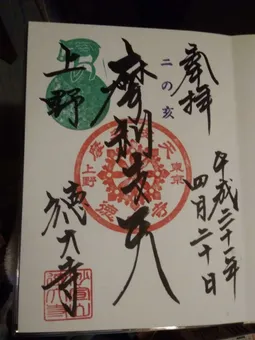 奉拝
二の亥
平成三十一年
四月二十日
摩利支天
東京
上野
上野
徳大寺